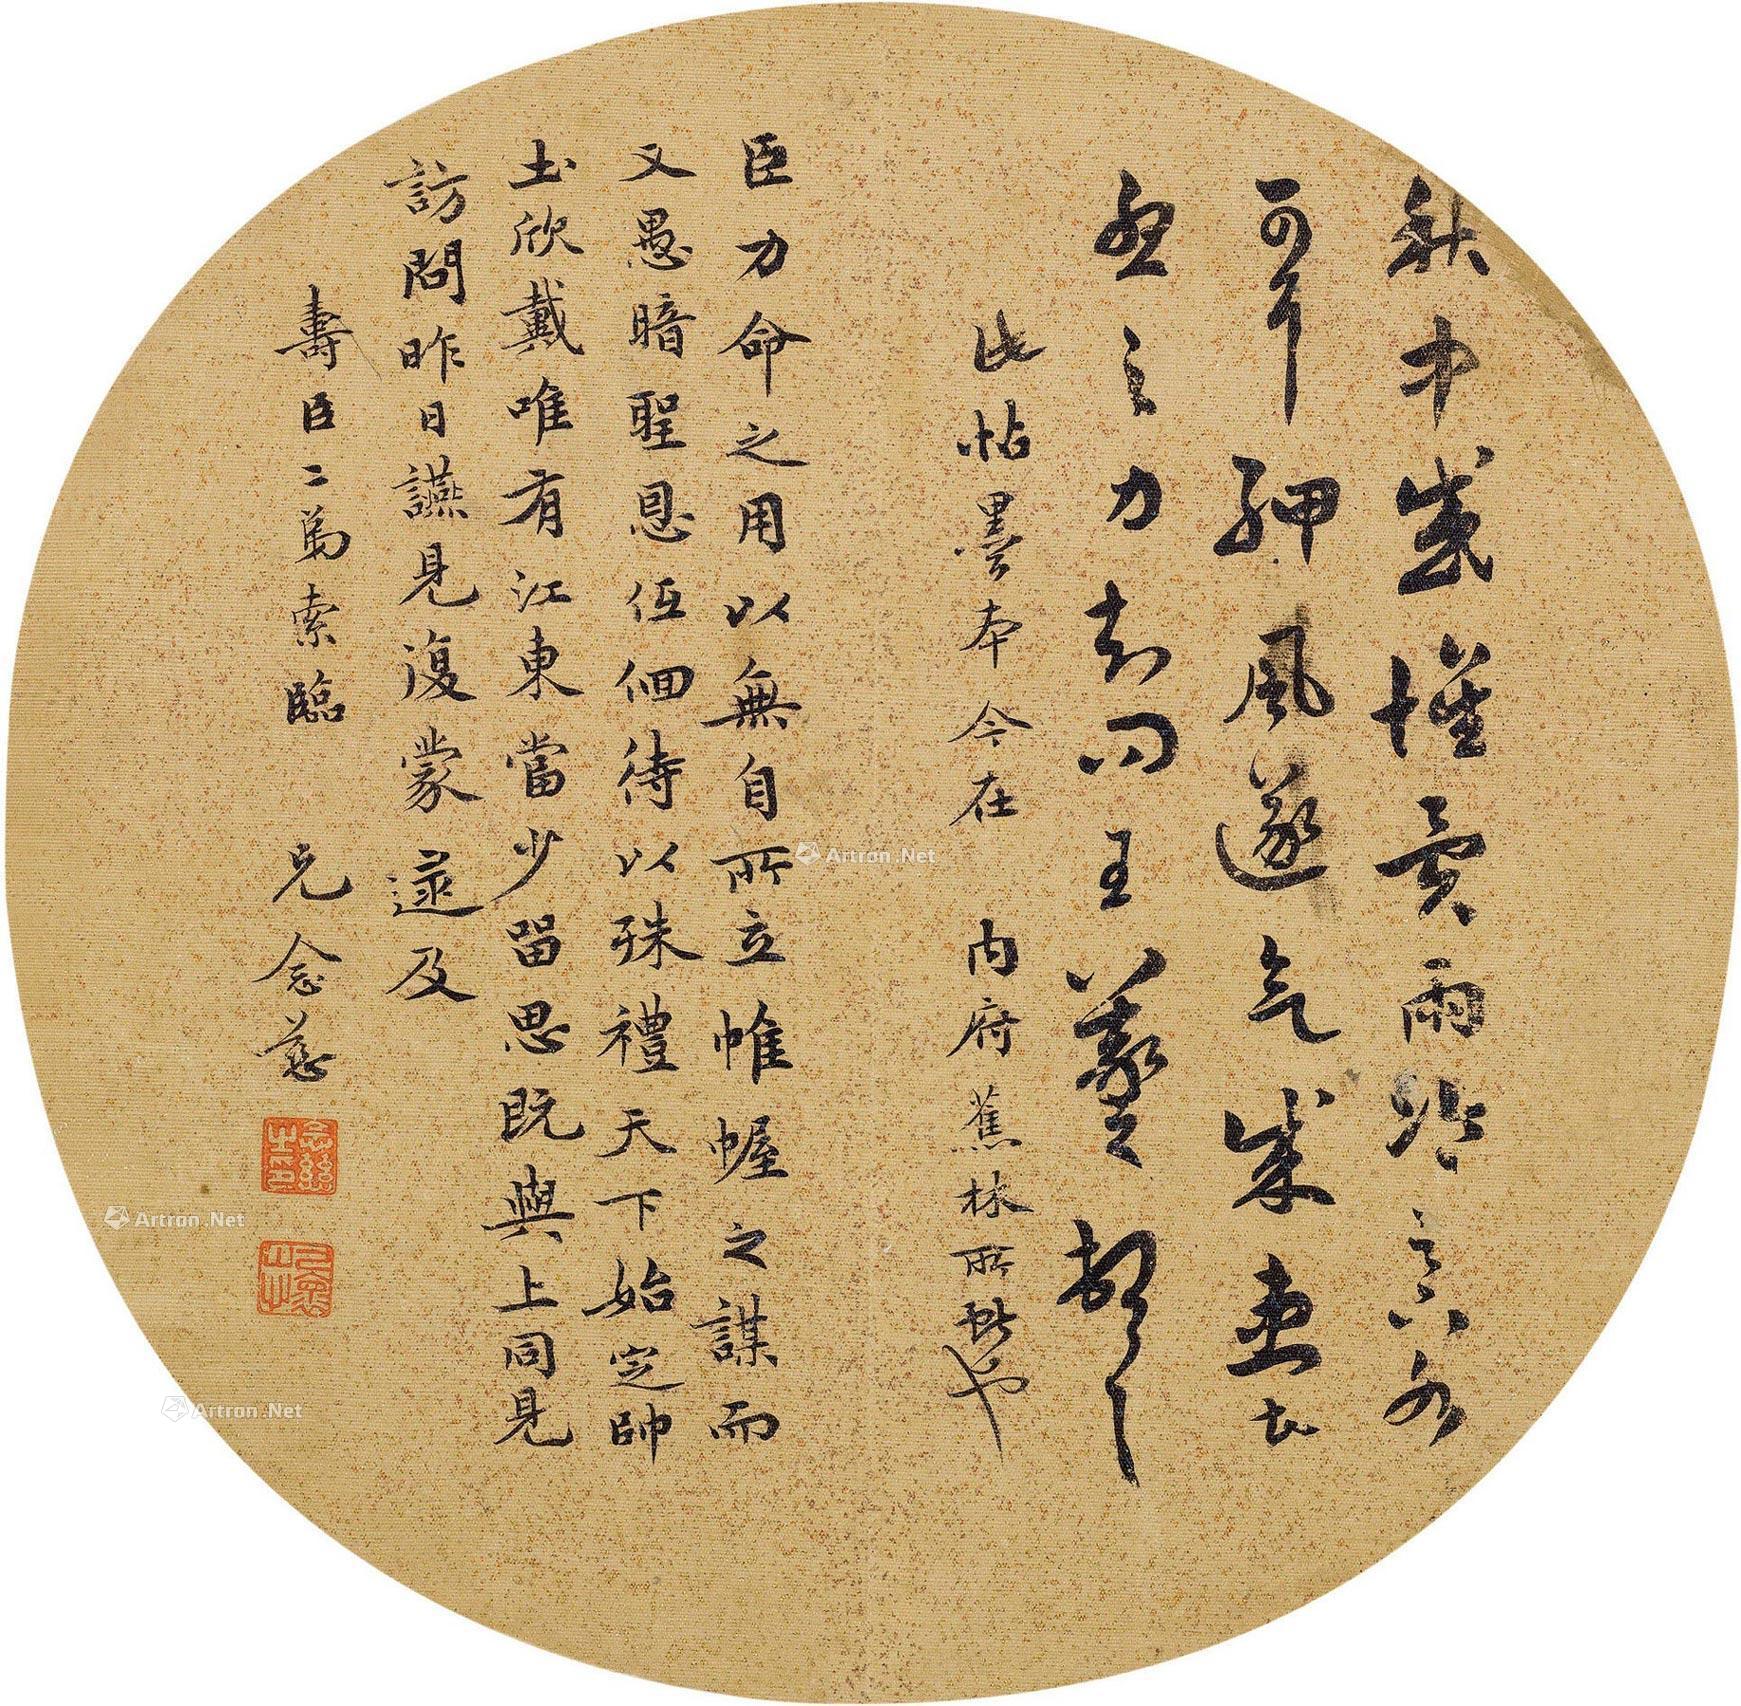 秋中感懷異雨冷
可耳
胛風遂
力知問王羲之頓
此帖墨本今在
内府蕉林所
臣力命之用以無自所立帷幄之謀而
又愚暗聖恩低佪待以殊禮天下始定帥
土欣戴唯有江東當少留思既與上同見
訪問昨日讌見復蒙逮及
壽臣二弟索臨 兄念慈
Artron.Net
Artron.Net
Artron.Net